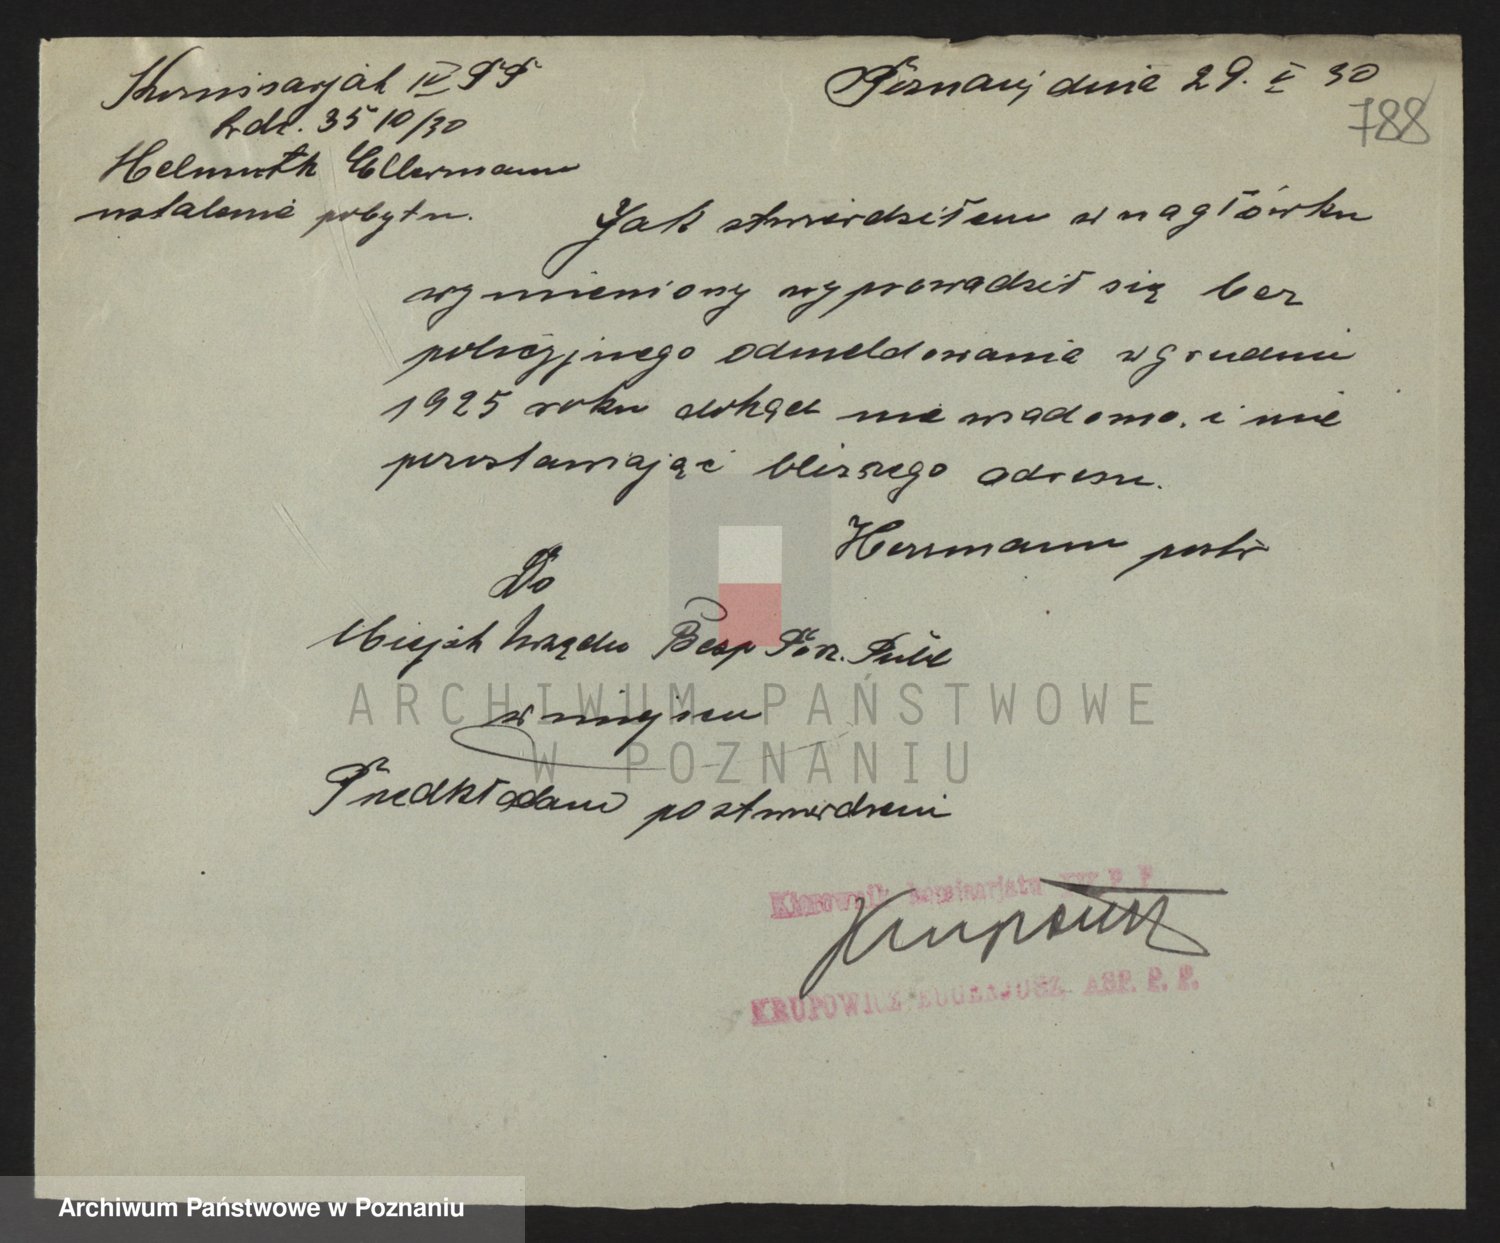 Komisarjat IV PP
L.dz. 3510/30
Helmuth Ellermann
ustalenie pobytu.
Poznań, dnia 29. V 30
788
Jak stwierdziłem w nagłówku
wymieniony wyprowadził się bez
policyjnego odmeldowania w grudniu
1925 roku dokąd nie wiadomo. i nie
pozostawiając bliższego adresu.
Herrmann post.
Do
Miejsk Urzędu Bezp Porz. Publ
w miejscu
Przedkładam po stwierdzeniu
Kierownik Komisarjatu IV P. P.
KRUPOWICZ EUGENJUSZ ASP. P. P.
ARCHIWUM PAŃSTWOWE
W POZNANIU
Archiwum Państwowe w Poznaniu